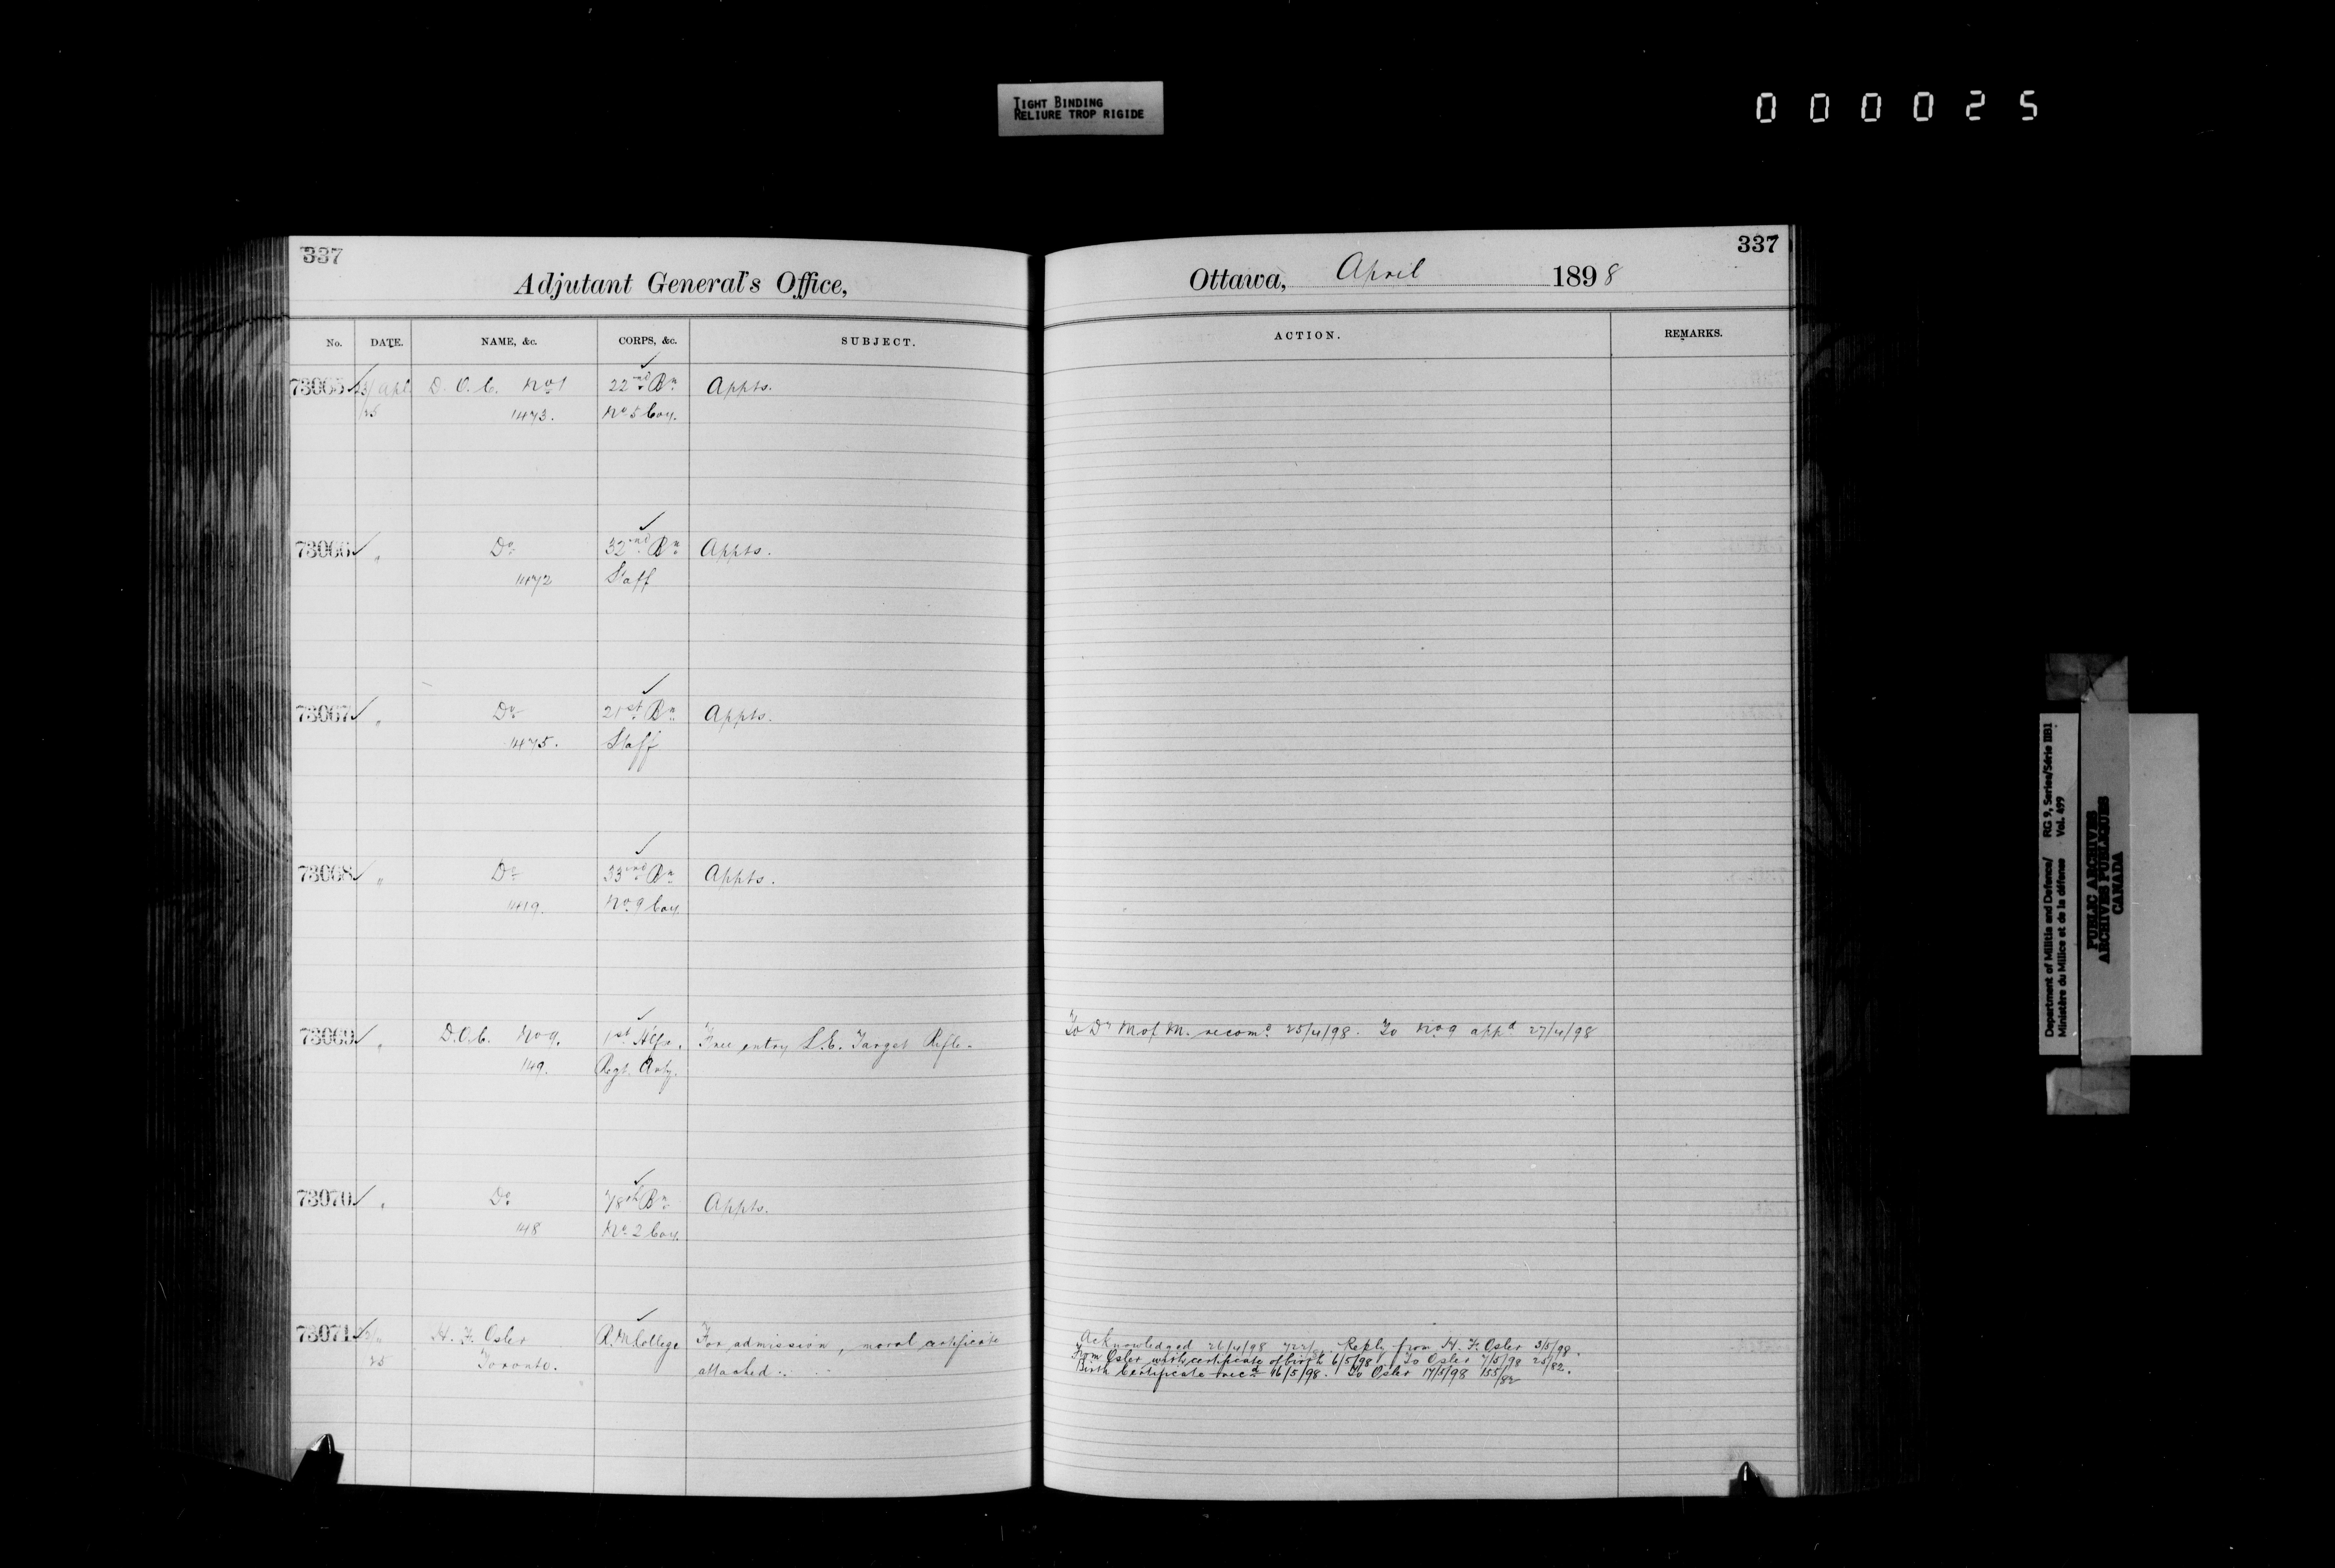 TIGHT BINDING
RELIURE TROP RIGIDE
000025
337
Adjutant General's Office,
No. DATE. NAME, &c. CORPS, &c. SUBJECT.
73065 23/Apl D. O. C. No 1 22nd Bn Appts.
25 1473. No 5 Coy.
73066 " Do 32nd Bn Appts.
1472 Staff
73067 " Do 21st Bn Appts.
1475. Staff
73068 " Do 33rd Bn Appts.
1419. No 9 Coy.
73069 " D.O.C. No 9. 1st Hfx. Free entry L.E. Target Rifle.
149. Regt. Arty.
73070 " Do 78th Bn Appts.
148 No 2 Coy.
73071 H. F. Osler R.M.College For admission, moral certificate
25 Toronto. attached.
337
Ottawa, April 1898
ACTION. REMARKS.
To Dr M of M. recomd 25/4/98. To No 9 appd 27/4/98
Acknowledged 26/4/98 Reply from H. F. Osler 3/5/98.
From Osler with certificate of birth 6/5/98. To Osler 7/5/98 25/82.
Birth Certificate recd 16/5/98. To Osler 17/5/98 155/82
Department of Militia and Defence/ RG 9, Series/Série IIB1
Ministère du Milice et de la défense Vol. 499
PUBLIC ARCHIVES
ARCHIVES PUBLIQUES
CANADA